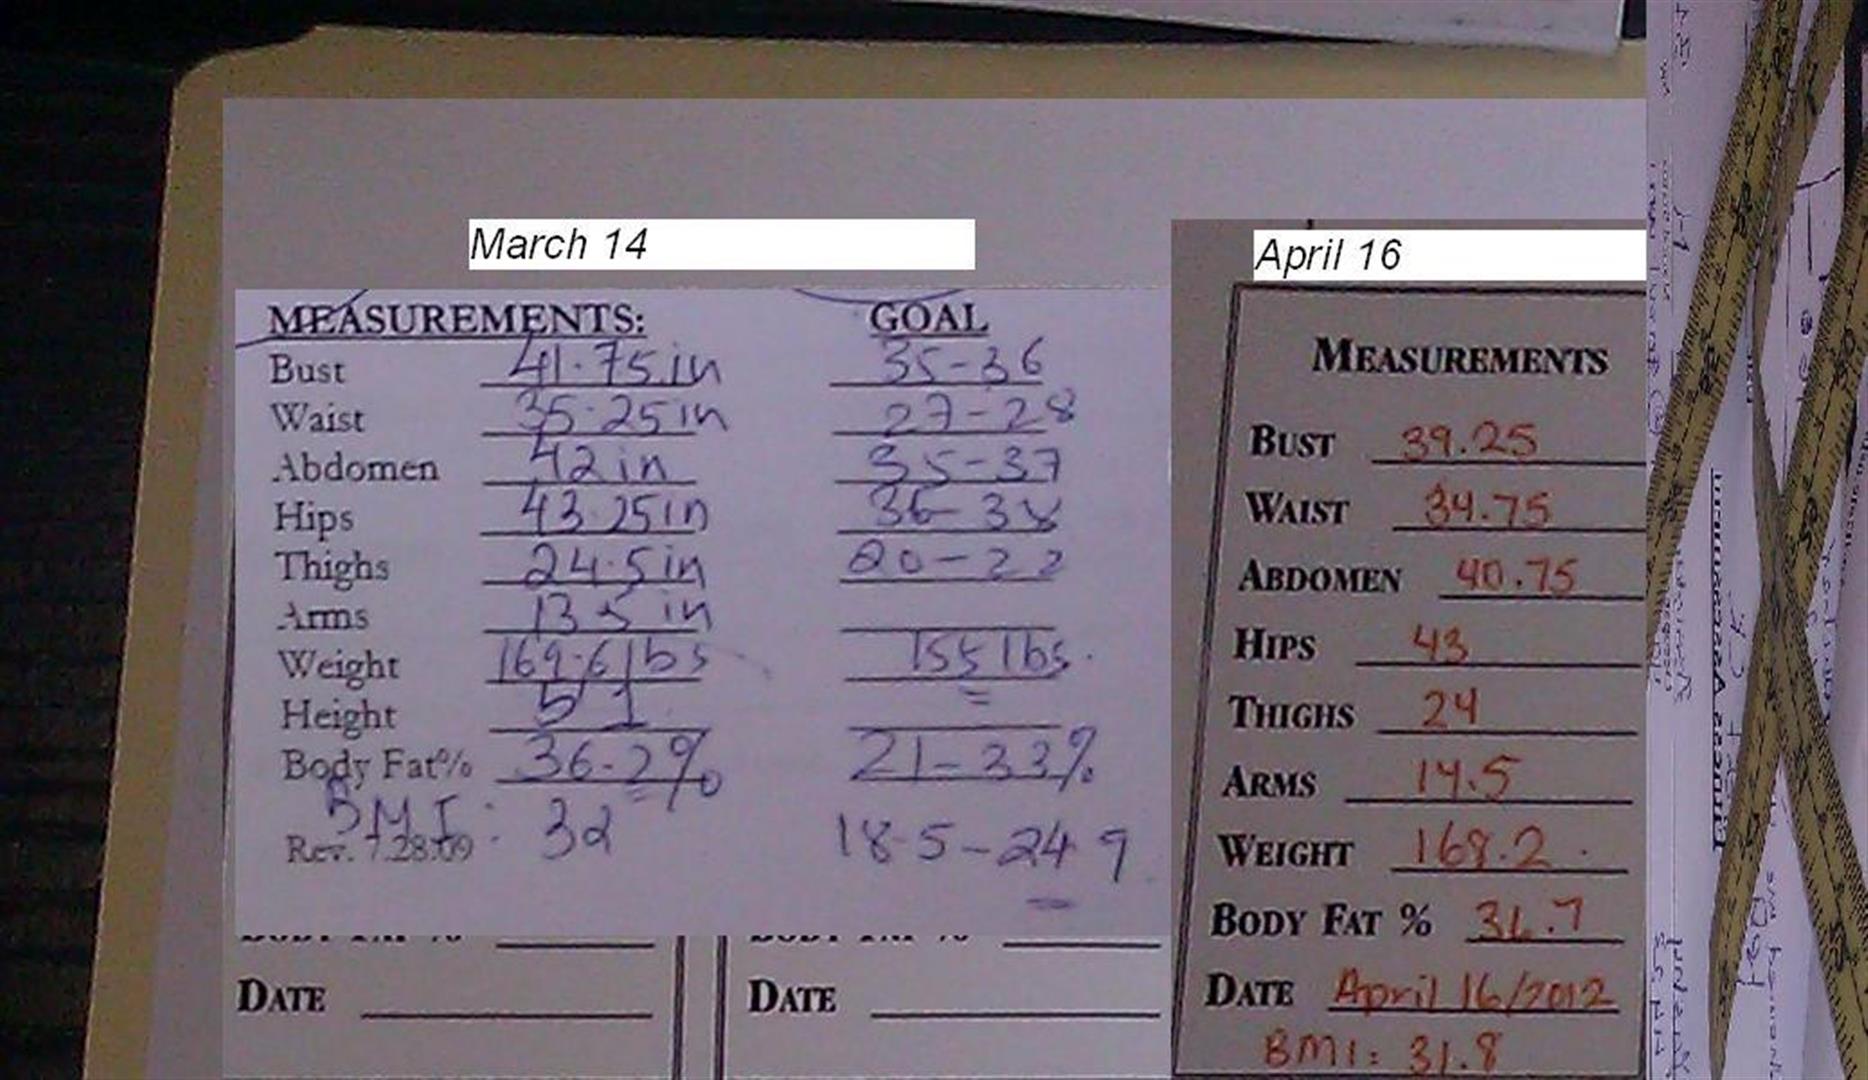 March 14
MEASUREMENTS: GOAL
Bust 41.75 in 35-36
Waist 35.25 in 27-28
Abdomen 42 in 35-37
Hips 43.25 in 36-38
Thighs 24.5 in 20-22
Arms 13.5 in
Weight 169.6 lbs 155 lbs.
Height 5 1
Body Fat% 36.2% 21-33%
BMI: 32 18.5-24.9
Rev. 7.28.09
DATE DATE
April 16
MEASUREMENTS
BUST 39.25
WAIST 34.75
ABDOMEN 40.75
HIPS 43
THIGHS 24
ARMS 14.5
WEIGHT 168.2
BODY FAT %
DATE April 16/2012
BMI: 31.8